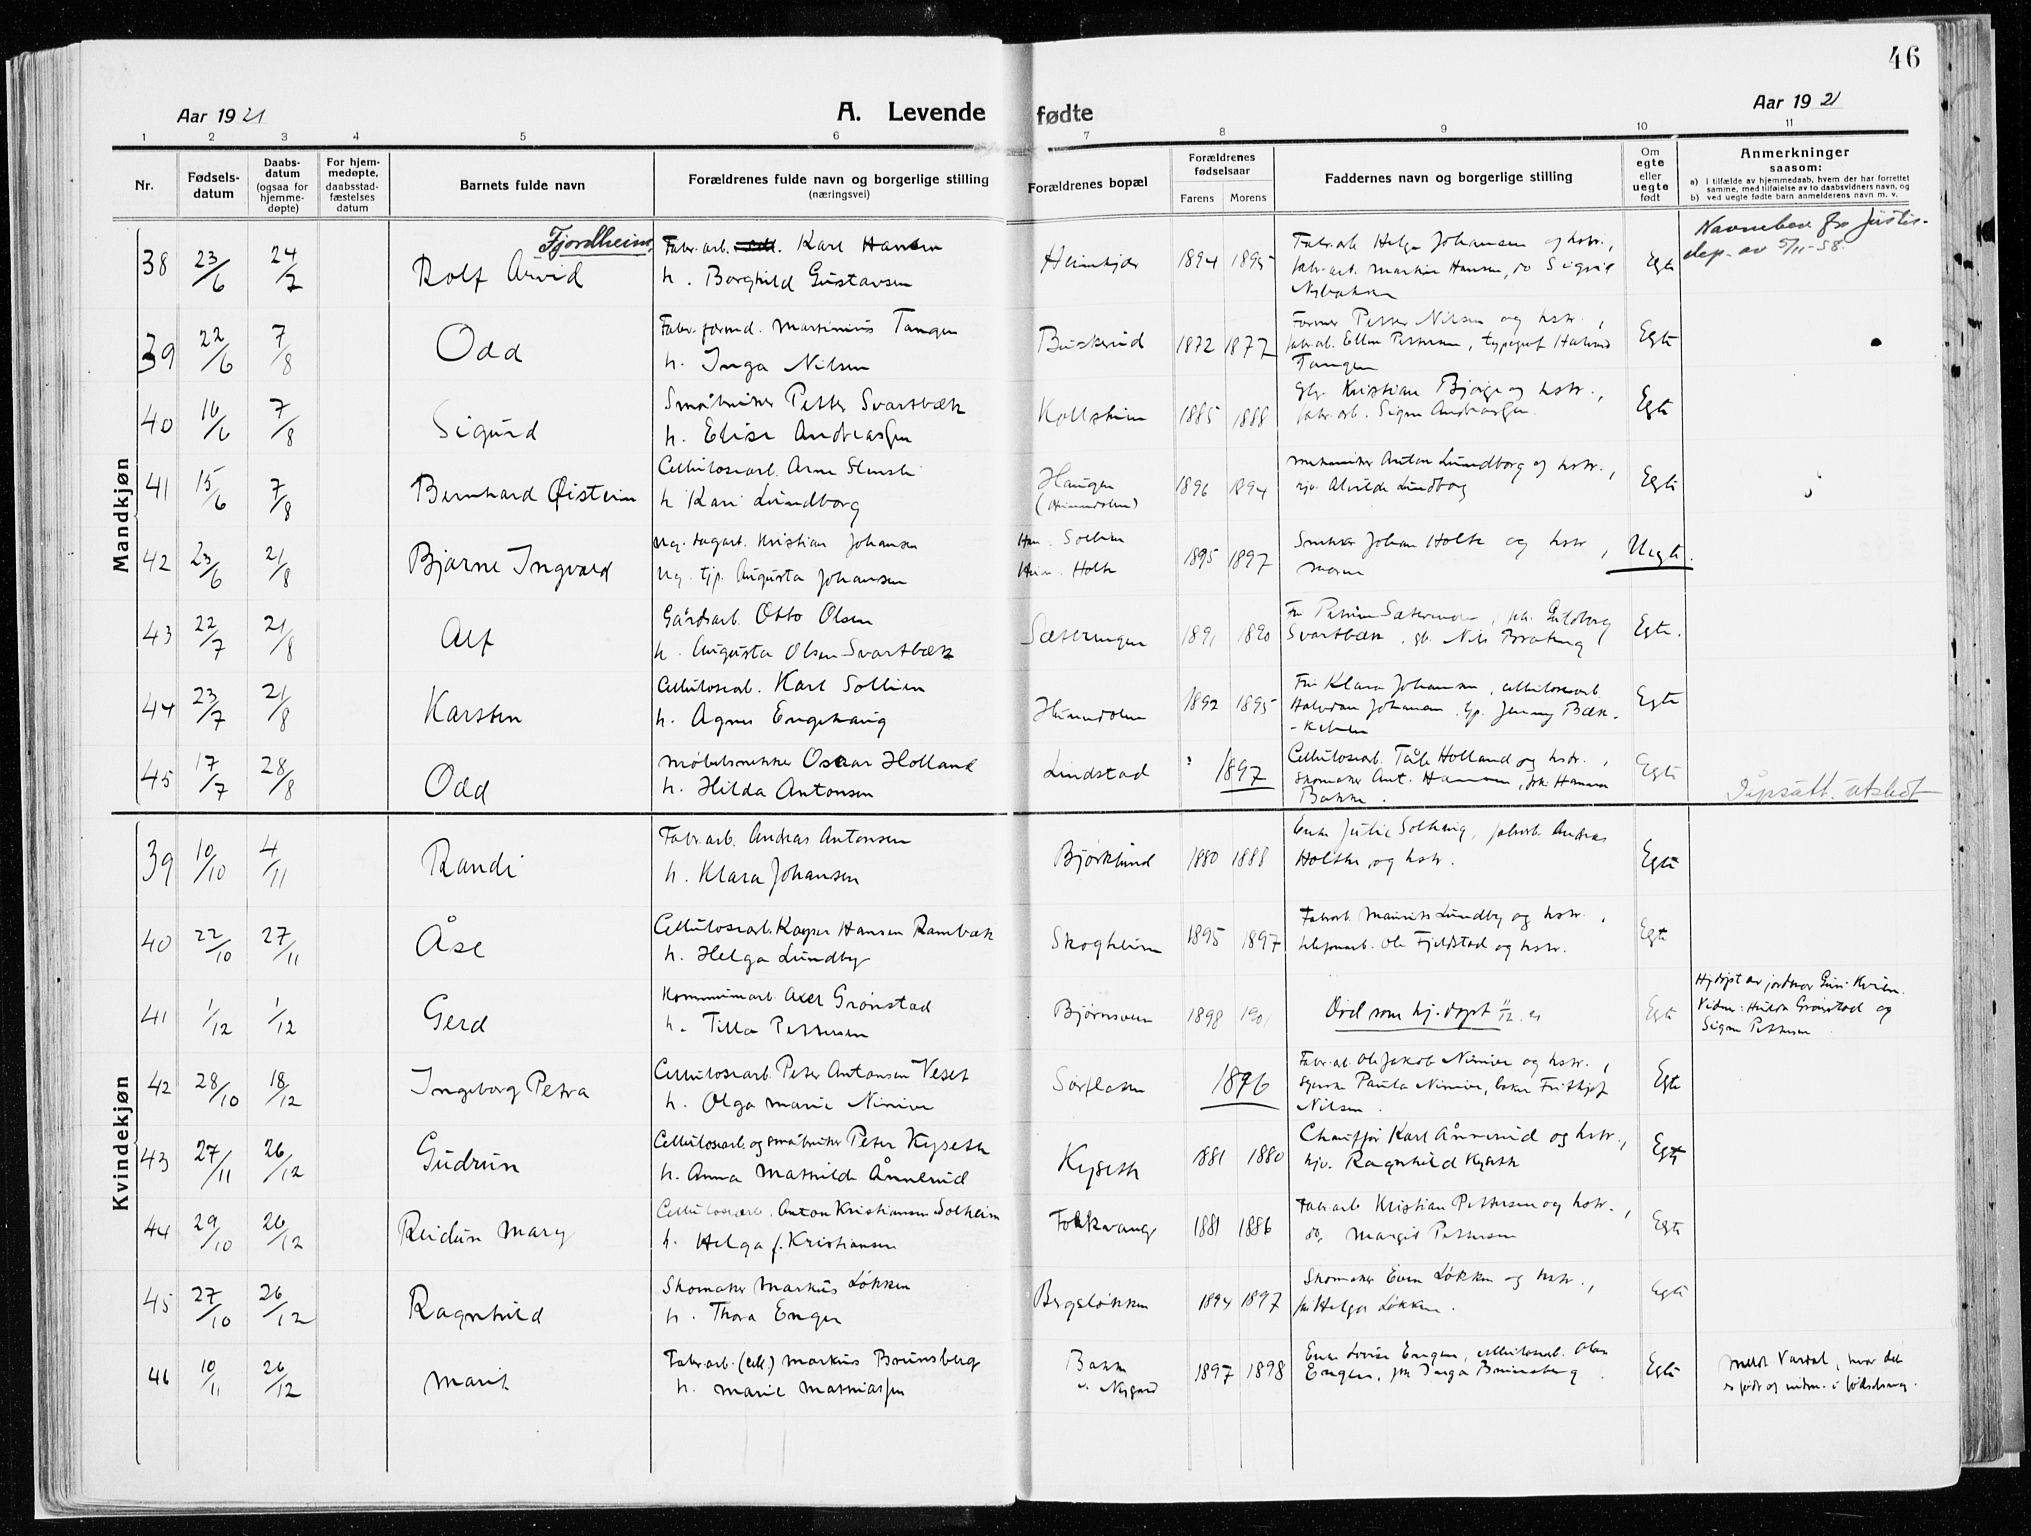 46
Aar 1921 A. Levende fødte Aar 1921
1 2 3 4 5 6 7 8 9 10 11
Nr. Fødsels-datum Daabs-datum (ogsaa for hjemme-døpte) For hjem-medøpte, daabsstad-fæstelses datum Barnets fulde navn Forældrenes fulde navn og borgerlige stilling (næringsvei) Forældrenes bopæl Forældrenes fødselsaar Farens Morens Faddernes navn og borgerlige stilling Om egte eller uegte født Anmerkninger saasom:
a) i tilfælde av hjemmedaab, hvem der har forrettet samme, med tilføielse av to daabsvidners navn, og
b) ved uegte fødte barn anmelderens navn m. v.
Mandkjøn
38 23/6 24/7 Rolf Arvid Fjordheim, Fabr.arb. Karl Hansen
h. Borghild Gustavsen
1894 1895 Fabr.arb. Helge Johansen og hstr.,
fabr.arb. Martin Hansen, do Sigrid
Egte Navnebev. fra Justis-
dep. av 5/11-58.
39 22/6 7/8 Odd Fabr.formd. Martinius Tangen
h. Inga Nilsen
Buskerud 1872 1877 Former Petter Nilsen og hstr.,
fabr.arb. Ellen Pettersen, typograf Halvard
Tangen
Egte
40 16/6 7/8 Sigurd Småbruker Petter Svartbæk
h. Elise Andreassen
Kollsheim 1885 1888 Gbr. Kristian Bjørge og hstr.,
fabr.arb. Signe Andreassen.
Egte
41 15/6 7/8 Bernhard Øistein Cellulosearb. Arne
h Kari Lundborg
Haugen
(Hunndalen)
1896 1894 mekaniker Anton Lundborg og hstr.,
hjv. Alvilde Lundborg
Egte
42 23/6 21/8 Bjarne Ingvald Ug. dagarb. Kristian Johansen
Ug. tjp. Augusta Johansen
Han. Solheim
Hun. Holte
1895 1897 Snekker Johan Holte og hstr.,
moren
Uegte.
43 22/7 21/8 Alf Gårdsarb. Otto Olsen
h. Augusta Olsen Svartbæk
Sæterengen 1891 1890 Fru Petrine, frk. Guldborg
Svartbæk, gb. Nils Bratberg
Egte.
44 23/7 21/8 Karsten Cellulosearb. Karl Sollien
h. Agnes Engehaug
Hunndalen 1892 1895 Fru Klara Johansen, cellulosearb.
Halvdan Johansen, tjp. Jenny Bæk-
Egte
45 17/7 28/8 Odd Møbelsnekker Oscar Holland
h. Hilda Antonsen
Lindstad ? 1897 Cellulosearb. Tåle Holland og hstr.,
Skomaker Ant. Hansen, frk. Hanna
Bakke.
Egte Dåpsatt. utstedt
Kvindekjøn
39 10/10 4/11 Randi Fabr.arb. Andreas Antonsen
h. Klara Johansen
Bjørklund 1880 1888 Enke Julie Solhaug, fabr.arb. Andreas
Holthe og hstr.
Egte
40 22/10 27/11 Åse Cellulosearb. Kasper Hansen Rambæk
h. Helga Lundby
Skogheim 1895 1897 Fabr.arb. Mauritz Lundby og hstr.,
telefonarb. Ole Fjeldstad og hstr.
Egte
41 1/12 1/12 Gerd Kommunearb. Axel Grønstad
h. Tilla Pettersen
Bjørnsveen 1898 1901 Død som hj.døpt 11/12. 21
Egte Hjdøpt av jordmor Guri Kvien.
Vidner: Hulda Grønstad og
Signe Pettersen.
42 28/10 18/12 Ingeborg Petra Cellulosearb. Peter Antonsen Veset
h. Olga Marie Ninive
Sørflaten 1896 Fabr.arb. Ole Jakob Ninive og hstr.,
Paula Ninive, baker Fritjof
Nilsen.
Egte
43 27/11 26/12 Gudrun Cellulosearb. og småbruker Peter Kyseth
h. Anna Mathilde Ånnerud
Kyseth 1881 1880 Chaufför Karl Ånnerud og hstr.,
hjv. Ragnhild Kyseth
Egte
44 29/10 26/12 Reidun Mary Cellulosearb. Anton Kristiansen Solheim
h. Helga f. Kristiansen
Folkvang 1881 1886 Fabr.arb. Kristian Pettersen og hstr.,
do, Margit Pettersen
Egte
45 27/10 26/12 Ragnhild Skomaker Markus Løkken
h. Thora Enger
Bergsløkken 1894 1897 Skomaker Even Løkken og hstr.,
frk. Helga Løkken.
Egte
46 10/11 26/12 Marit Fabr.arb. (cell.) Markus Brunsberg
h. Marie Mathiassen
Bakke
u. Nygard
1897 1898 Enke Lovise Engen, cellulosearb. Olav
Engen, frk Inga Brunsberg.
Egte Meldt Vardal, hvor det
er født og indm. i fødselsreg.